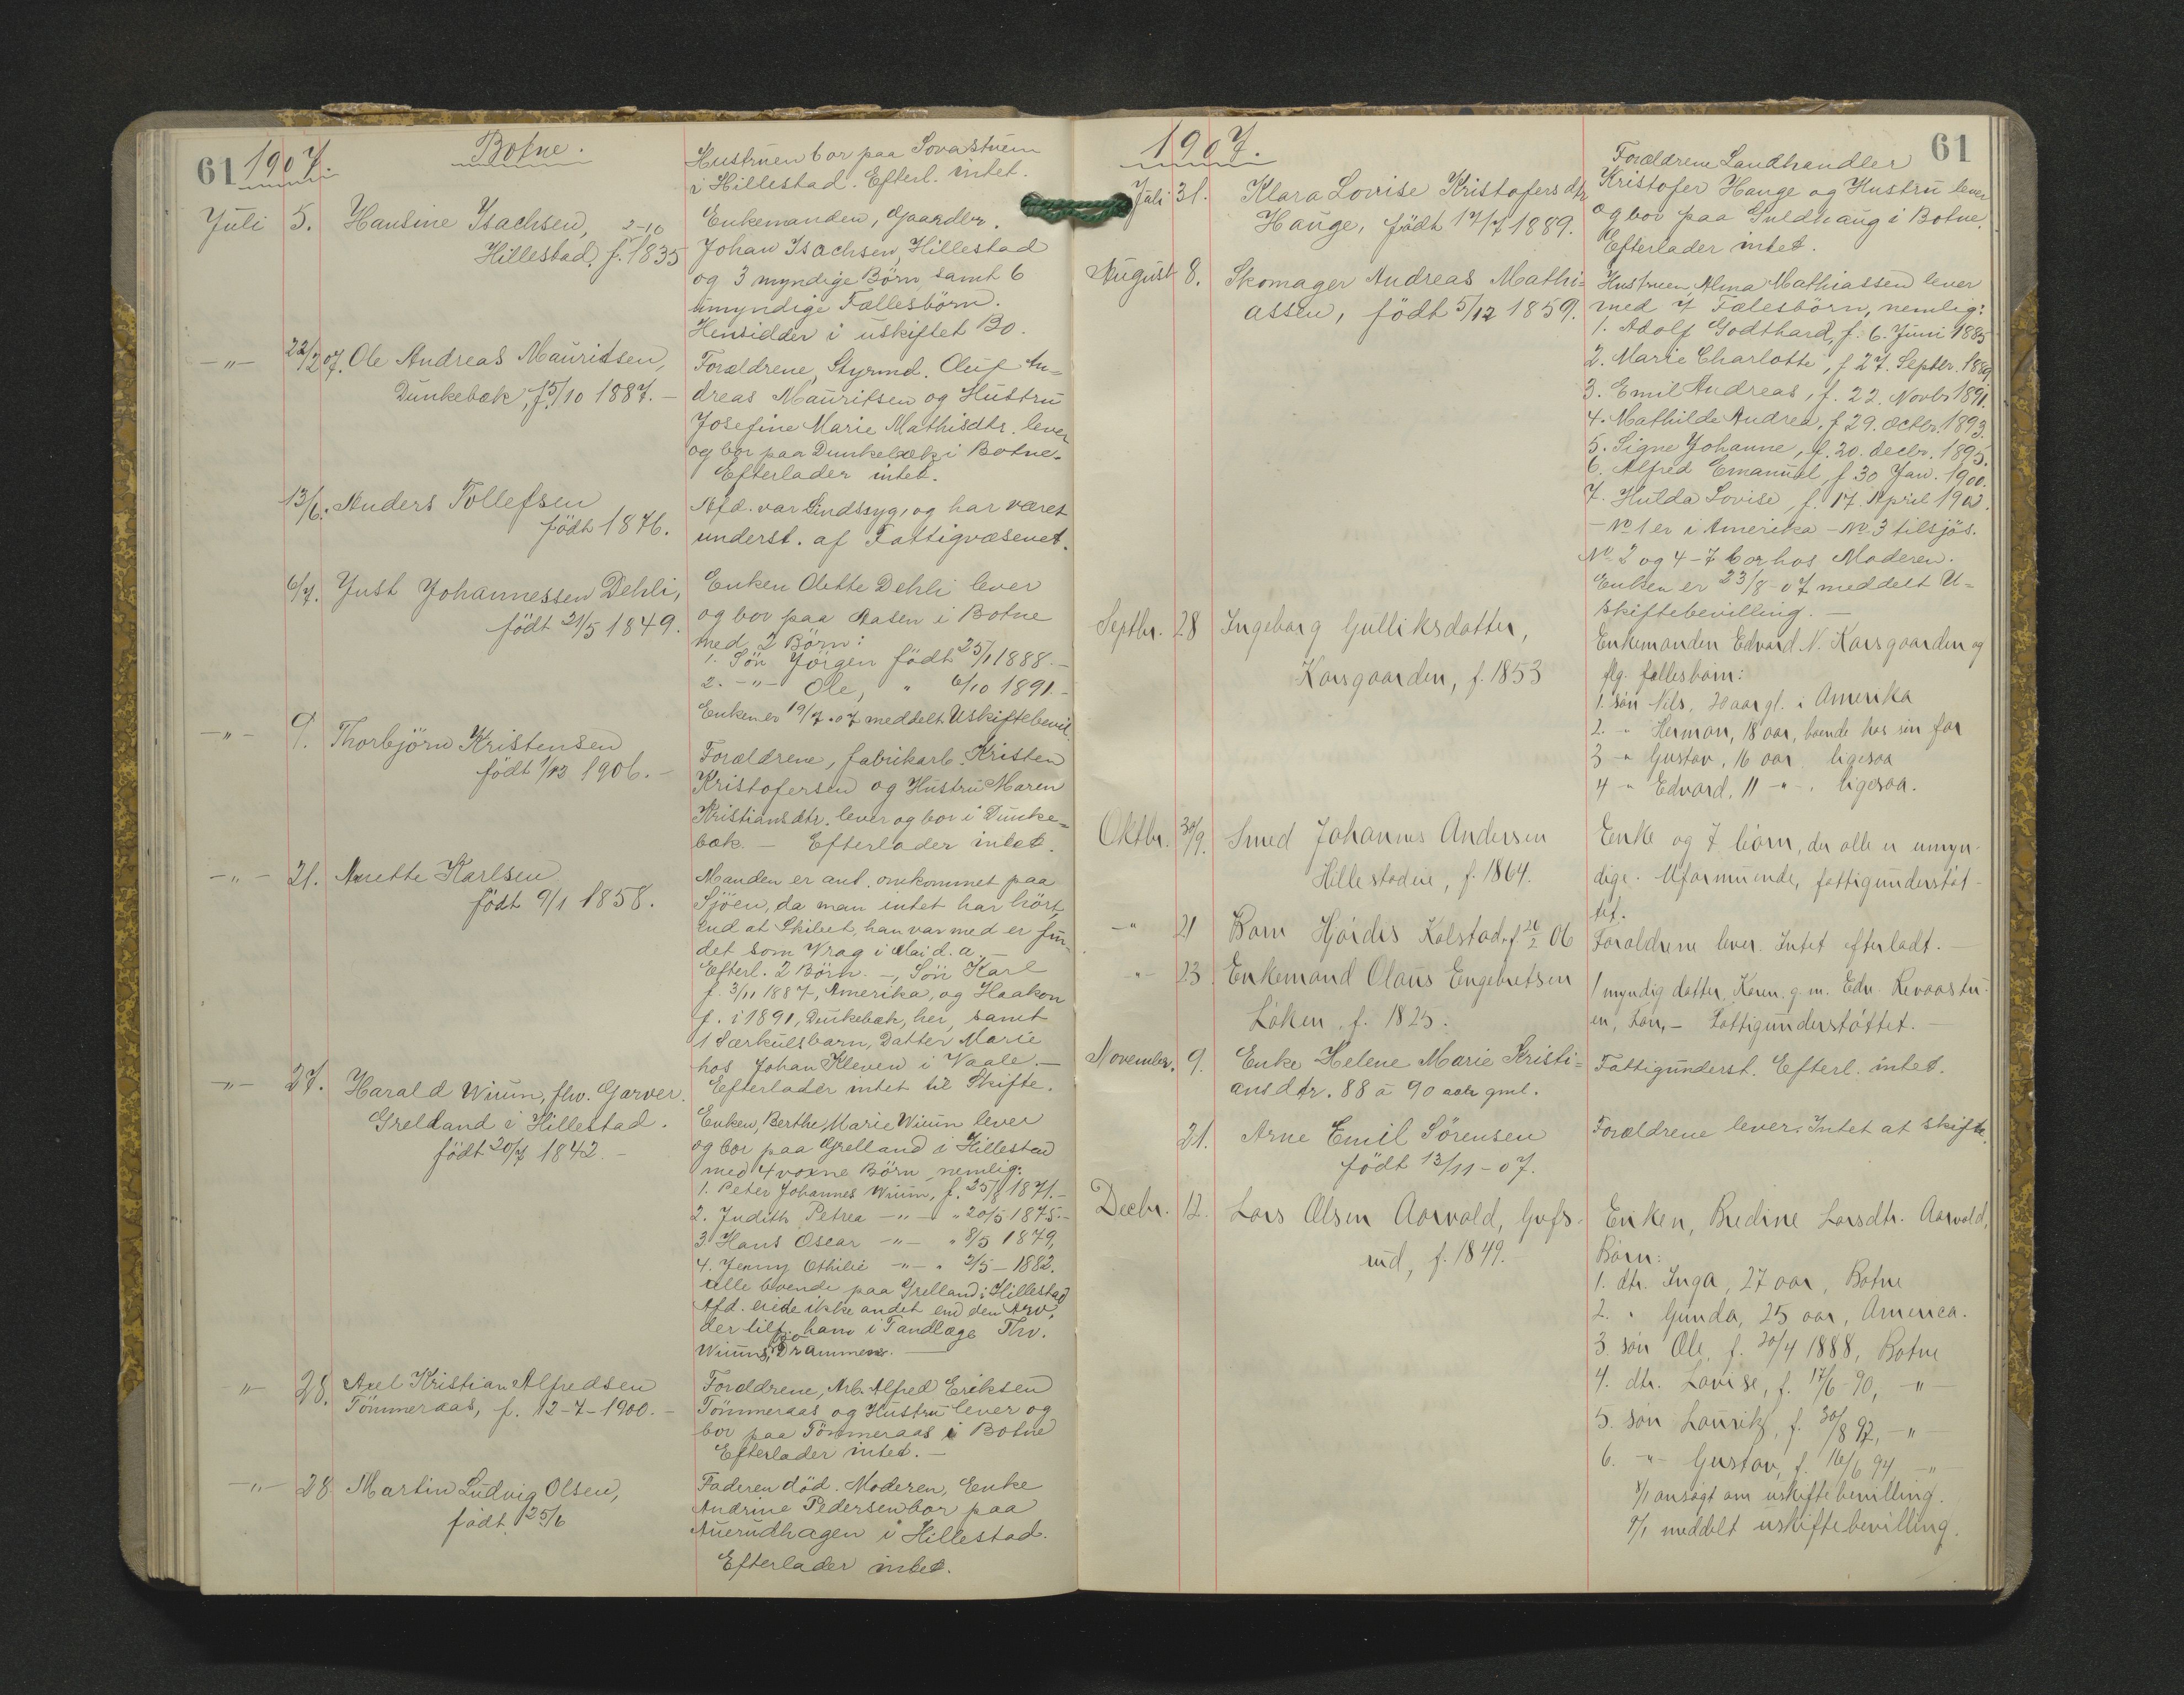 61 1907.
Botne.
Hustruen bor paa Sovastuen
i Hillestad. Efterl. intet.
Juli 5. Hansine Isachsen, 2-10
Hillestad, f. 1835
Enkemanden, Gaardbr.
Johan Isachsen, Hillestad
og 3 myndige Börn samt 6
umyndige Fællesbörn.
Hensidder i uskiftet Bo.
-"- 22/2 07. Ole Andreas Mauritsen,
Dunkebæk, f. 5/10 1887. -
Forældrene, Styrmd. Oluf An=
dreas Mauritsen og Hustru
Josefine Marie Mathisdtr. lever
og bor paa Dunkebæk i Botne.
Efterlader intet.
13/6. Anders Tollefsen
födt 1876.
Afd. var Sindssyg, og har været
underst. af Fattigvæsenet.
6/7. Just Johannessen Dehli,
födt 21/5 1849.
Enken Olette Dehli lever
og bor paa Aasen i Botne
med 2 Börn:
1. Sön Jörgen födt 25/1 1888. -
2. -"- Ole, " 6/10 1891. -
Enken er 19/7.07 meddelt Uskiftebevil.
-"- 9. Thorbjörn Kristensen
födt 1/12 1906. -
Forældrene, fabrikarb. Kristen
Kristofersen og Hustru Maren
Kristiansdtr. lever og bor i Dunke=
bæk. - Efterlader intet.
-"- 21. Anette Karlsen
födt 9/1 1858.
Manden er ant. omkommet paa
Sjöen, da man intet har hört,
end at Skibet, han var med er fun-
det som Vrag i Mai d. a. -
Efterl. 2 Börn. -, Sön Karl
f. 3/11 1887, Amerika, og Haakon
f. i 1891, Dunkebæk, her, samt
1 Særkulsbarn, Datter Marie
hos Johan Kleven i Vaale. -
Efterlader intet til Skifte.
-"- 27. Harald Wium, fhv. Garver.
Grelland i Hillestad.
födt 20/7 1842. -
Enken, Berthe Marie Wium lever
og bor paa Grelland i Hillestad
med 4 voxne Börn, nemlig:
1. Peter Johannes Wium, f. 25/8 1871. -
2. Judith Petrea -"- " 20/5 1875. -
3. Hans Oscar -"- " 8/5 1879,
4. Jenny Othilie -"- " 2/5 - 1882.
alle boende paa Grelland i Hillestad
Afd. eiede ikke andet end den Arv,
der tilf. ham i Tandlæge Thv.
Wiums Bo Drammen. -
"- 28. Axel Kristian Alfredsen
Tömmeraas, f. 12-7-1900. -
Forældrene, Arb. Alfred Eriksen
Tömmeraas og Hustru lever og
bor paa Tömmeraas i Botne
Efterlader intet. -
-"- 28 Martin Ludvig Olsen,
födt 25/6
Faderen död. Moderen, Enke
Andrine Pedersen bor paa
Auerudhagen i Hillestad.
Efterlader intet.
1907.
61
Juli 31. Klara Lovise Kristofersdtr
Hauge, födt 17/7 1889.
Forældrene Landhandler
Kristofer Hauge og Hustru lever
og bor paa Guldhaug i Botne.
Efterlader intet.
August 8. Skomager Andreas Mathi=
assen, födt 5/12 1859.
Hustruen, Alma Mathiassen lever
med 7 Fælesbörn, nemlig:
1. Adolf Godthard, f. 6. Juni 1885
2. Marie Charlotte, f. 27. Septbr. 1889
3. Emil Andreas, f. 22. Novbr 1891.
4. Mathilde Andrea, f. 29. octbr. 1893.
5. Signe Johanne, f. 20. decbr. 1895.
6. Alfred Emanuel, f 30 Jan. 1900.
7. Hulda Lovise, f. 17. April 1902.
- No 1 er i Amerika - No 3 tilsjös.
No 2 og 4 - 7 bor hos Moderen.
Enken er 23/8-07 meddelt U=
skiftebevilling. -
Septbr. 28 Ingeborg Gulliksdatter,
Korsgaarden, f. 1853
Enkemanden Edvard N. Korsgaarden og
flg. fællesbørn:
1. søn Nils, 20 aar gl. i Amerika
2. " Herman, 18 aar, boende hos sin far
3 " Gustav, 16 aar ligesaa
4 " Edvard, 11 -"- . ligesaa.
Oktbr. 30/9. Smed Johannes Andersen
Hillestadeie, f. 1864.
Enke og 7 børn, der alle er umyn-
dige. Uformuende, fattigunderstøt-
tet.
-" 21 Barn Hjørdis Kolstad f 26/2 06
Forældrene lever. Intet efterladt. -
-"- 23. Enkemand Olaus Engebretsen
Løken, f. 1825.
1 myndig datter, Karen g. m. Edv. Revaastu-
en, - Fattigunderstøttet. -
November. 9. Enke Helene Marie Kristi=
ansdtr. 88 à 90 aar gml.
Fattigunderst. Efterl. intet.
21. Arne Emil Sörensen
födt 13/11-07.
Forældrene lever. Intet at skifte.
Decbr. 12. Lars Olsen Aarvold, Gufs-
rud, f. 1849.
Enken, Bredine Larsdtr. Aarvold,
Børn:
1. dtr. Inga, 27 aar, Botne
2. " Gunda, 25 aar, America.
3. søn Ole, f. 20/4 1888, Botne
4. dtr. Lovise, f. 17/6-90, -"-
5. søn Lauritz, f. 30/8 92, -"-
6. -"- Gustav, f. 16/6 94 -"-
8/1 ansøgt om uskiftebevilling.
9/1 meddelt uskiftebevilling.